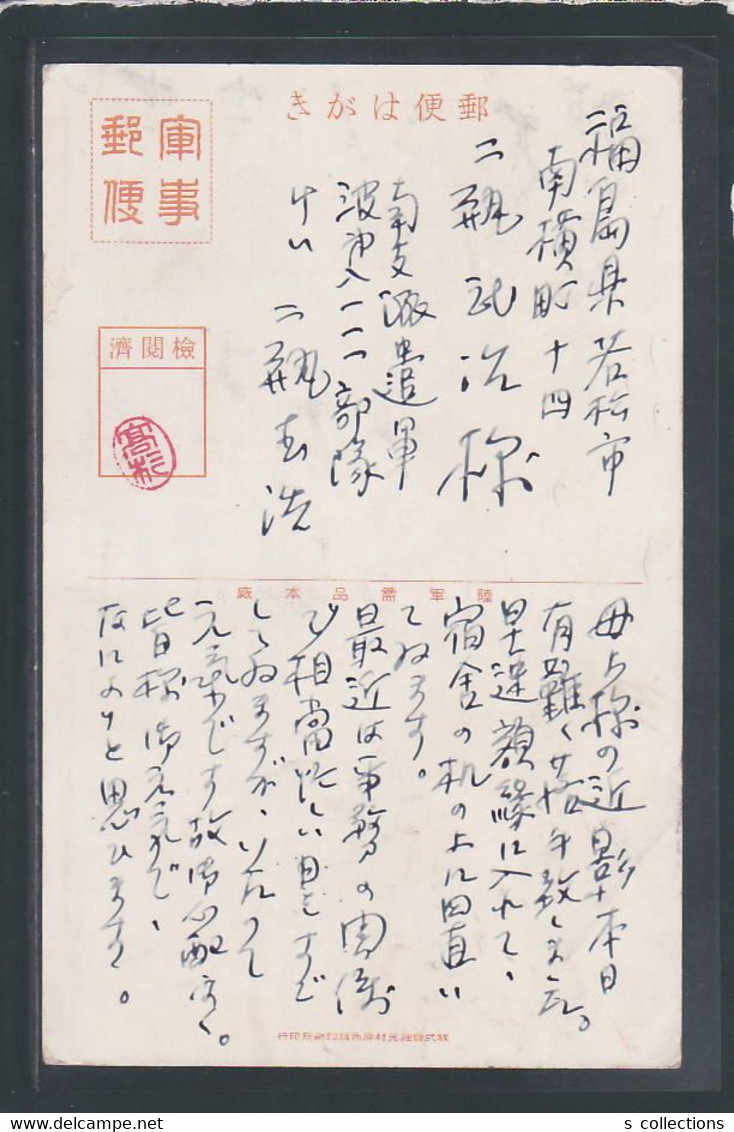 郵便はがき
軍事
郵便
検閲済
高杉
福島県若松市
南横町十四
二瓶武治様
南支派遣軍
波第八一一一部隊
二瓶
陸軍需品本廠
母上様の近影本日
有難く拝受致しました。
早速額縁に入れて、
宿舎の机の上に置い
てゐます。
最近は事務の関係
で相当忙しい日をすご
してゐますが、いたって
元気です故御心配なく。
皆様御元気で、
なによりと思ひます。
s collections